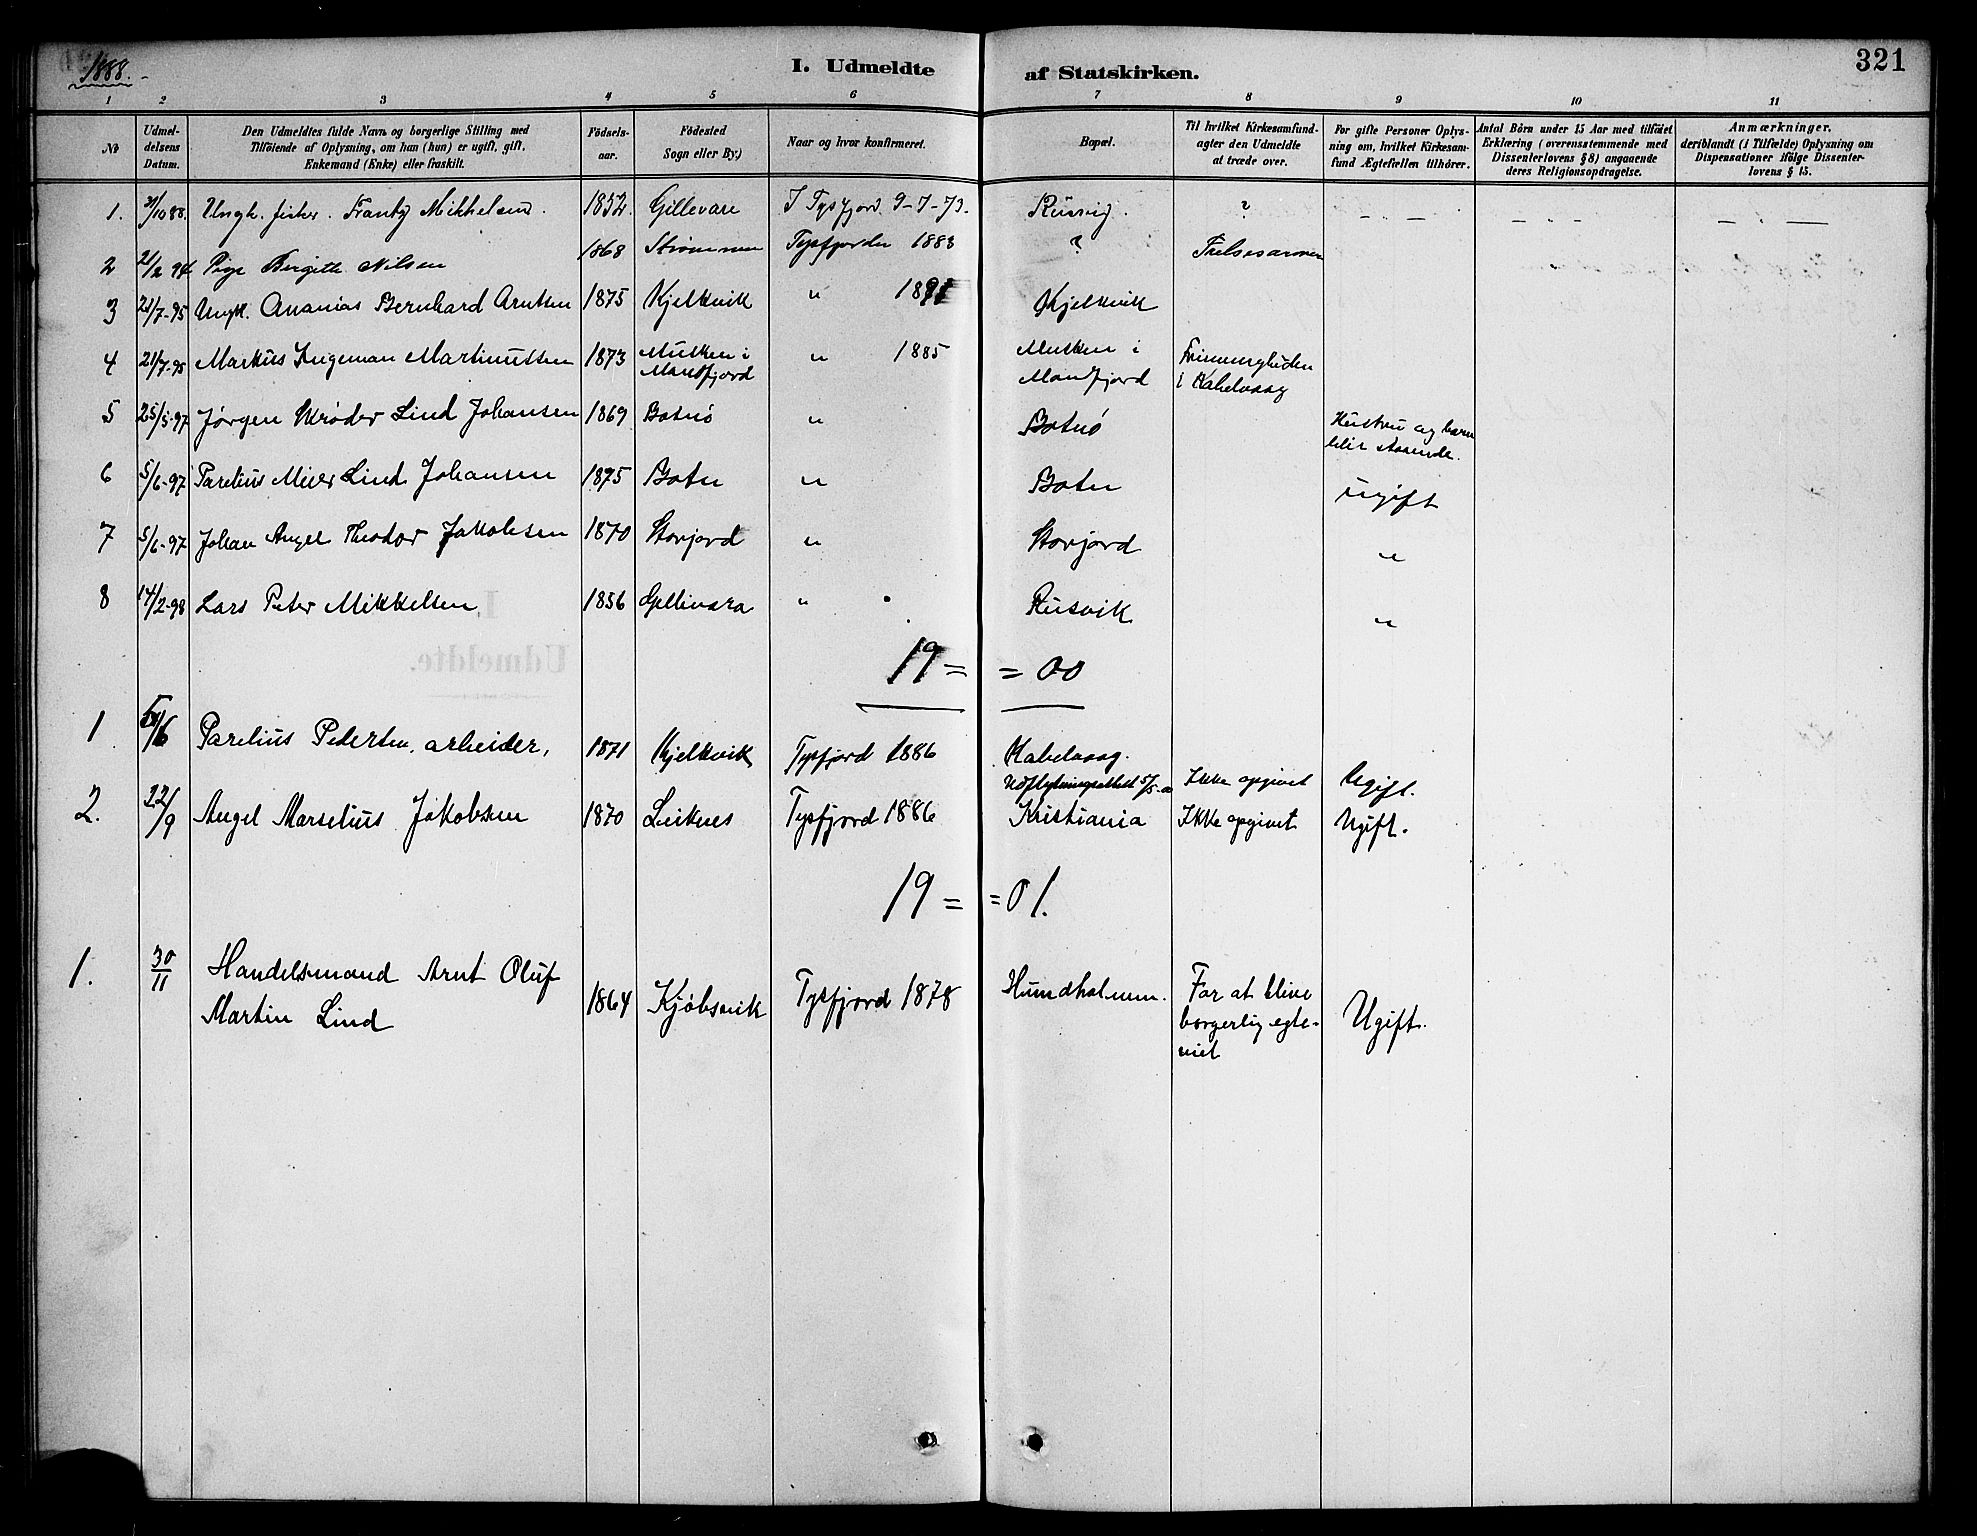 1888.
I. Udmeldte af Statskirken.
321
1 2 3 4 5 6 7 8 9 10 11
No
Udmel-
delsens
Datum.
Den Udmeldtes fulde Navn og borgerlige Stilling med
Tilföiende af Oplysning, om han (hun) er ugift, gift,
Enkemand (Enke) eller fraskilt.
Födsels-
aar.
Födested
Sogn eller By.)
Naar og hvor konfirmeret.
Bopæl.
Til hvilket Kirkesamfund-
agter den Udmeldte
at træde over.
For gifte Personer Oplys-
ning om, hvilket Kirkesam-
fund Ægtefællen tilhörer.
Antal Börn under 15 Aar med tilföiet
Erklæring (overensstemmende med
Dissenterlovens § 8) angaaende
deres Religionsopdragelse.
Anmærkninger.
deriblandt (i Tilfælde) Oplysning om
Dispensationer ifölge Dissenter-
lovens § 15.
1. 31/10 88. Ungk. fisker. Frantz Mikkelsen. 1852. Gillevare I Tysfjord 9-7-73. Rusvig. ? – – – –
2 21/2 94 Pige Birgitte Nilsen 1868 Strømmen Tysfjorden 1883 ? Frelsesarmeen
3 21/7-95 Ungk. Ananias Bernhard Arntsen 1875 Kjelkvik " 1891 Kjelkvik
4 21/7-95 Markus Ingeman Martinussen 1873 Musken i Mansfjord " 1885 Musken i Mansfjord Frimenigheden i Kabelvaag
5 25/5-97 Jørgen Lind Johansen 1869 Botnø " Botnø Hustru og barn blir staaende.
6 5/6-97 Parelius Meier Lind Johansen 1875 Botn " Botn ugift
7 5/6-97 Johan Angel Theodor Jakobsen 1870 Storjord " Storjord "
8 14/2-98 Lars Peter Mikkelsen 1856 Gellivara " Rusvik "
19 = = 00
1 5/6 Parelius Pedersen, arbeider, 1871 Kjelkvik Tysfjord 1886 Kabelvaag. Udflytningsattest 5/5-00 Ikke opgivet Ugift.
2. 22/9 Angel Marselius Jakobsen 1870 Leiknes Tysfjord 1886 Kristiania Ikke opgivet Ugift.
19 = = 01.
1. 30/11 Handelsmand Arnt Oluf
Martin Lind 1864 Kjøbsvik Tysfjord 1878 Hundholmen. For at blive
borgerlig egte-
viet Ugift.